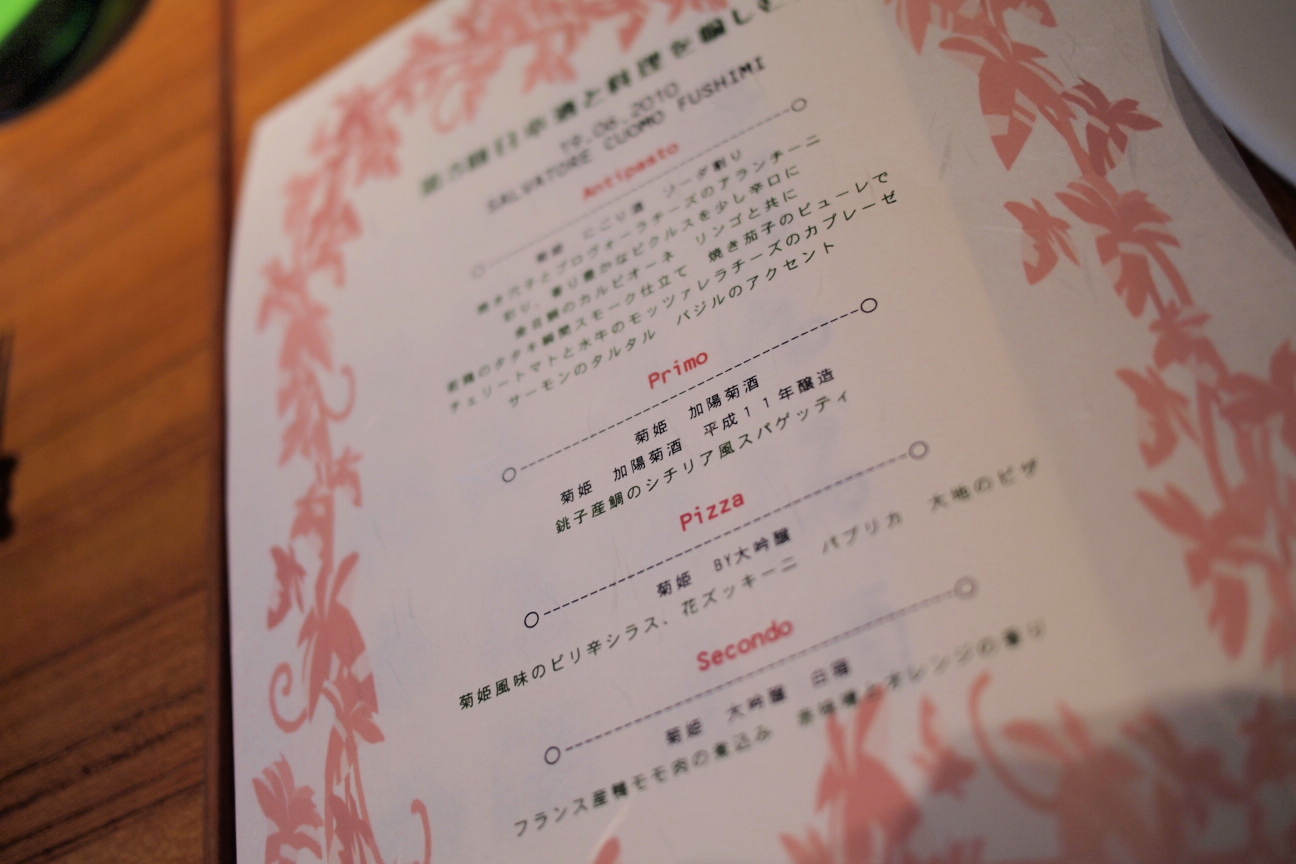 と料理を
18.06.2010
SALVATORE CUOMO FUSHIMI
Antipasto
菊姫 にごり酒 ソーダ割り
焼き穴子とプロヴォーラチーズのアランチーニ
香り豊かなピクルスを少し辛口に
のカルピオーネ リンゴと共に
若鶏のタタキ瞬間スモーク仕立て 焼き茄子のピューレで
チェリートマトと水牛のモッツァレラチーズのカプレーゼ
サーモンのタルタル バジルのアクセント
Primo
菊姫 加陽菊酒
菊姫 加陽菊酒 平成11年醸造
銚子産鯛のシチリア風スパゲッティ
Pizza
菊姫 BY大吟醸
菊姫風味のピリ辛シラス、花ズッキーニ パプリカ 大地のピザ
Secondo
菊姫 大吟醸
フランス産鴨モモ肉の煮込み オレンジの香り